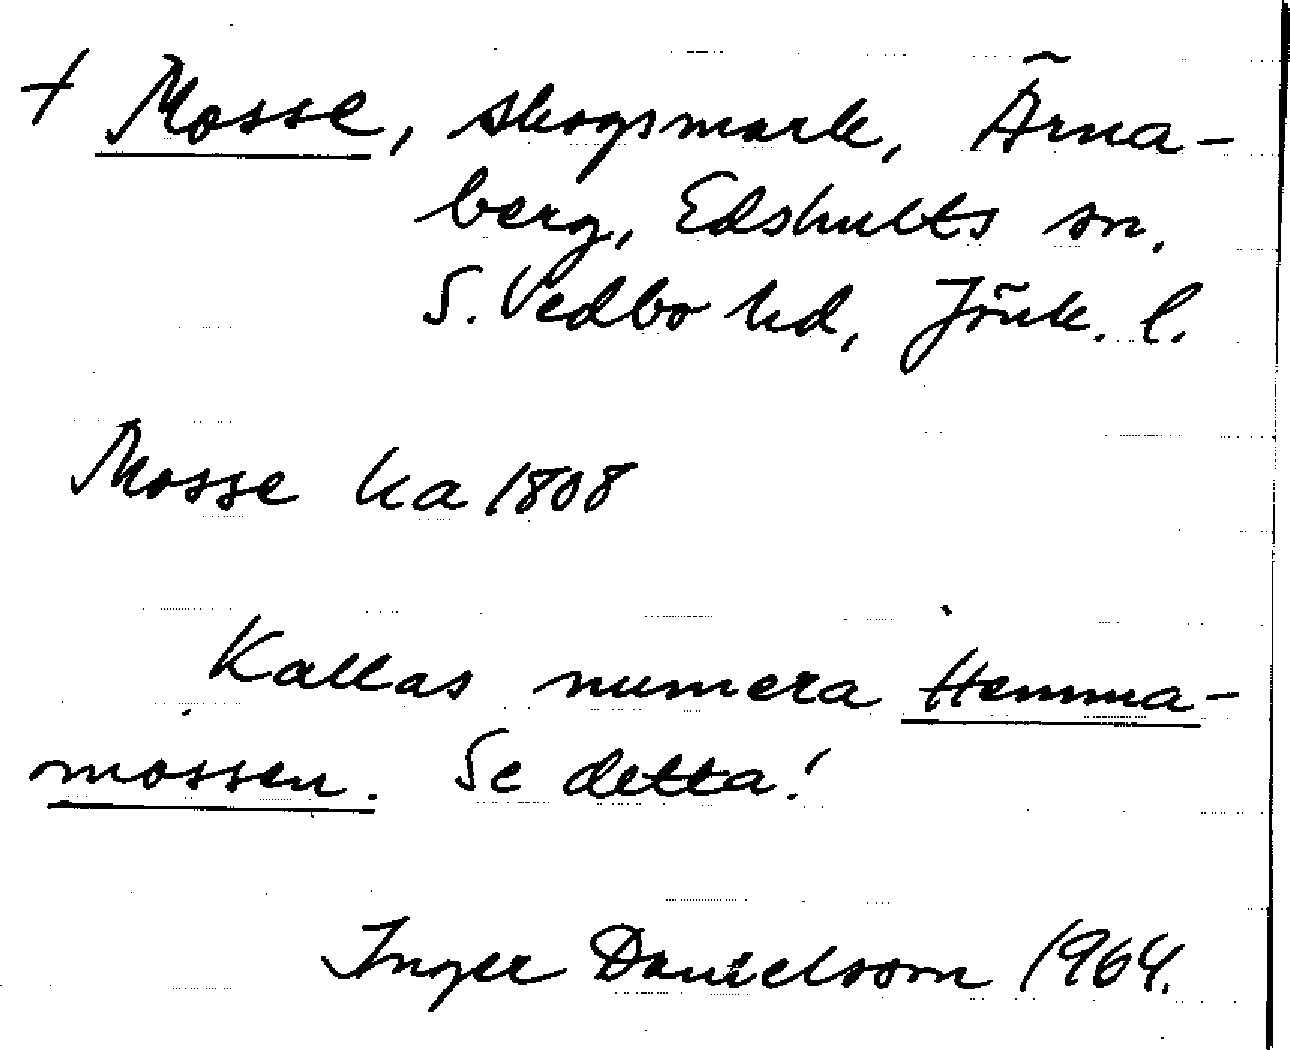 + Mosse, skogsmark, Ärna-
berg, Edshults sn.
S. Vedbo hd, Jönk. l.
Mosse ha 1808
Kallas numera Hemma-
mossen. Se detta!
Inger Danielsson 1964.